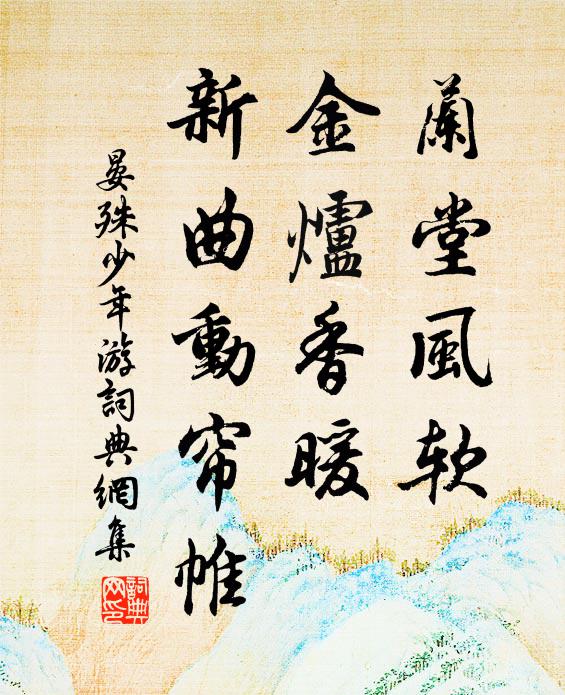 蘭堂風软
金爐香暖
新曲動帘帷
晏殊少年游詞典網集
詞典
网印